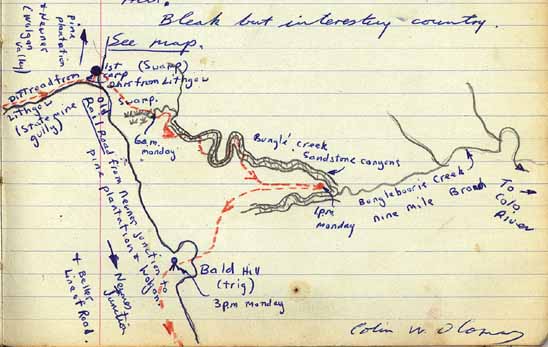 Bleak but interesting country.
See map.
pine
plantation
& Newnes
(Wolgan
Vally)
1st (Swarp)
carp
2hrs from Lithgow
Dirt road from
Lithgow
(State pine
Swarp.
6am.
monday
Old
Rail Road from Newnes Junction to
pine plantation & Wolgan
Bungle creek
Sandstone canyons
1pm
Monday
Bungleboori Creek
nine mile Branch
To
Colo
River
Bald Hill
(trig)
3pm Monday
Newnes
Junction
& Bells
Line of Road.
Colin W.